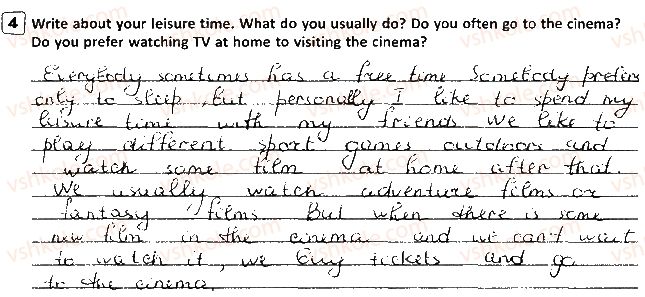 4 Write about your leisure time. What do you usually do? Do you often go to the cinema?
Do you prefer watching TV at home to visiting the cinema?
Everybody sometimes has a free time Somebody prefers
only to sleep, but personally I like to spend my
leisure time with my friends We like to
play different sport games outdoors and
watch some film at home after that.
We usually watch adventure films or
fantasy films. But when there is some
new film in the cinema and we can't wait
to watch it, we buy tickets and go
to the cinema.